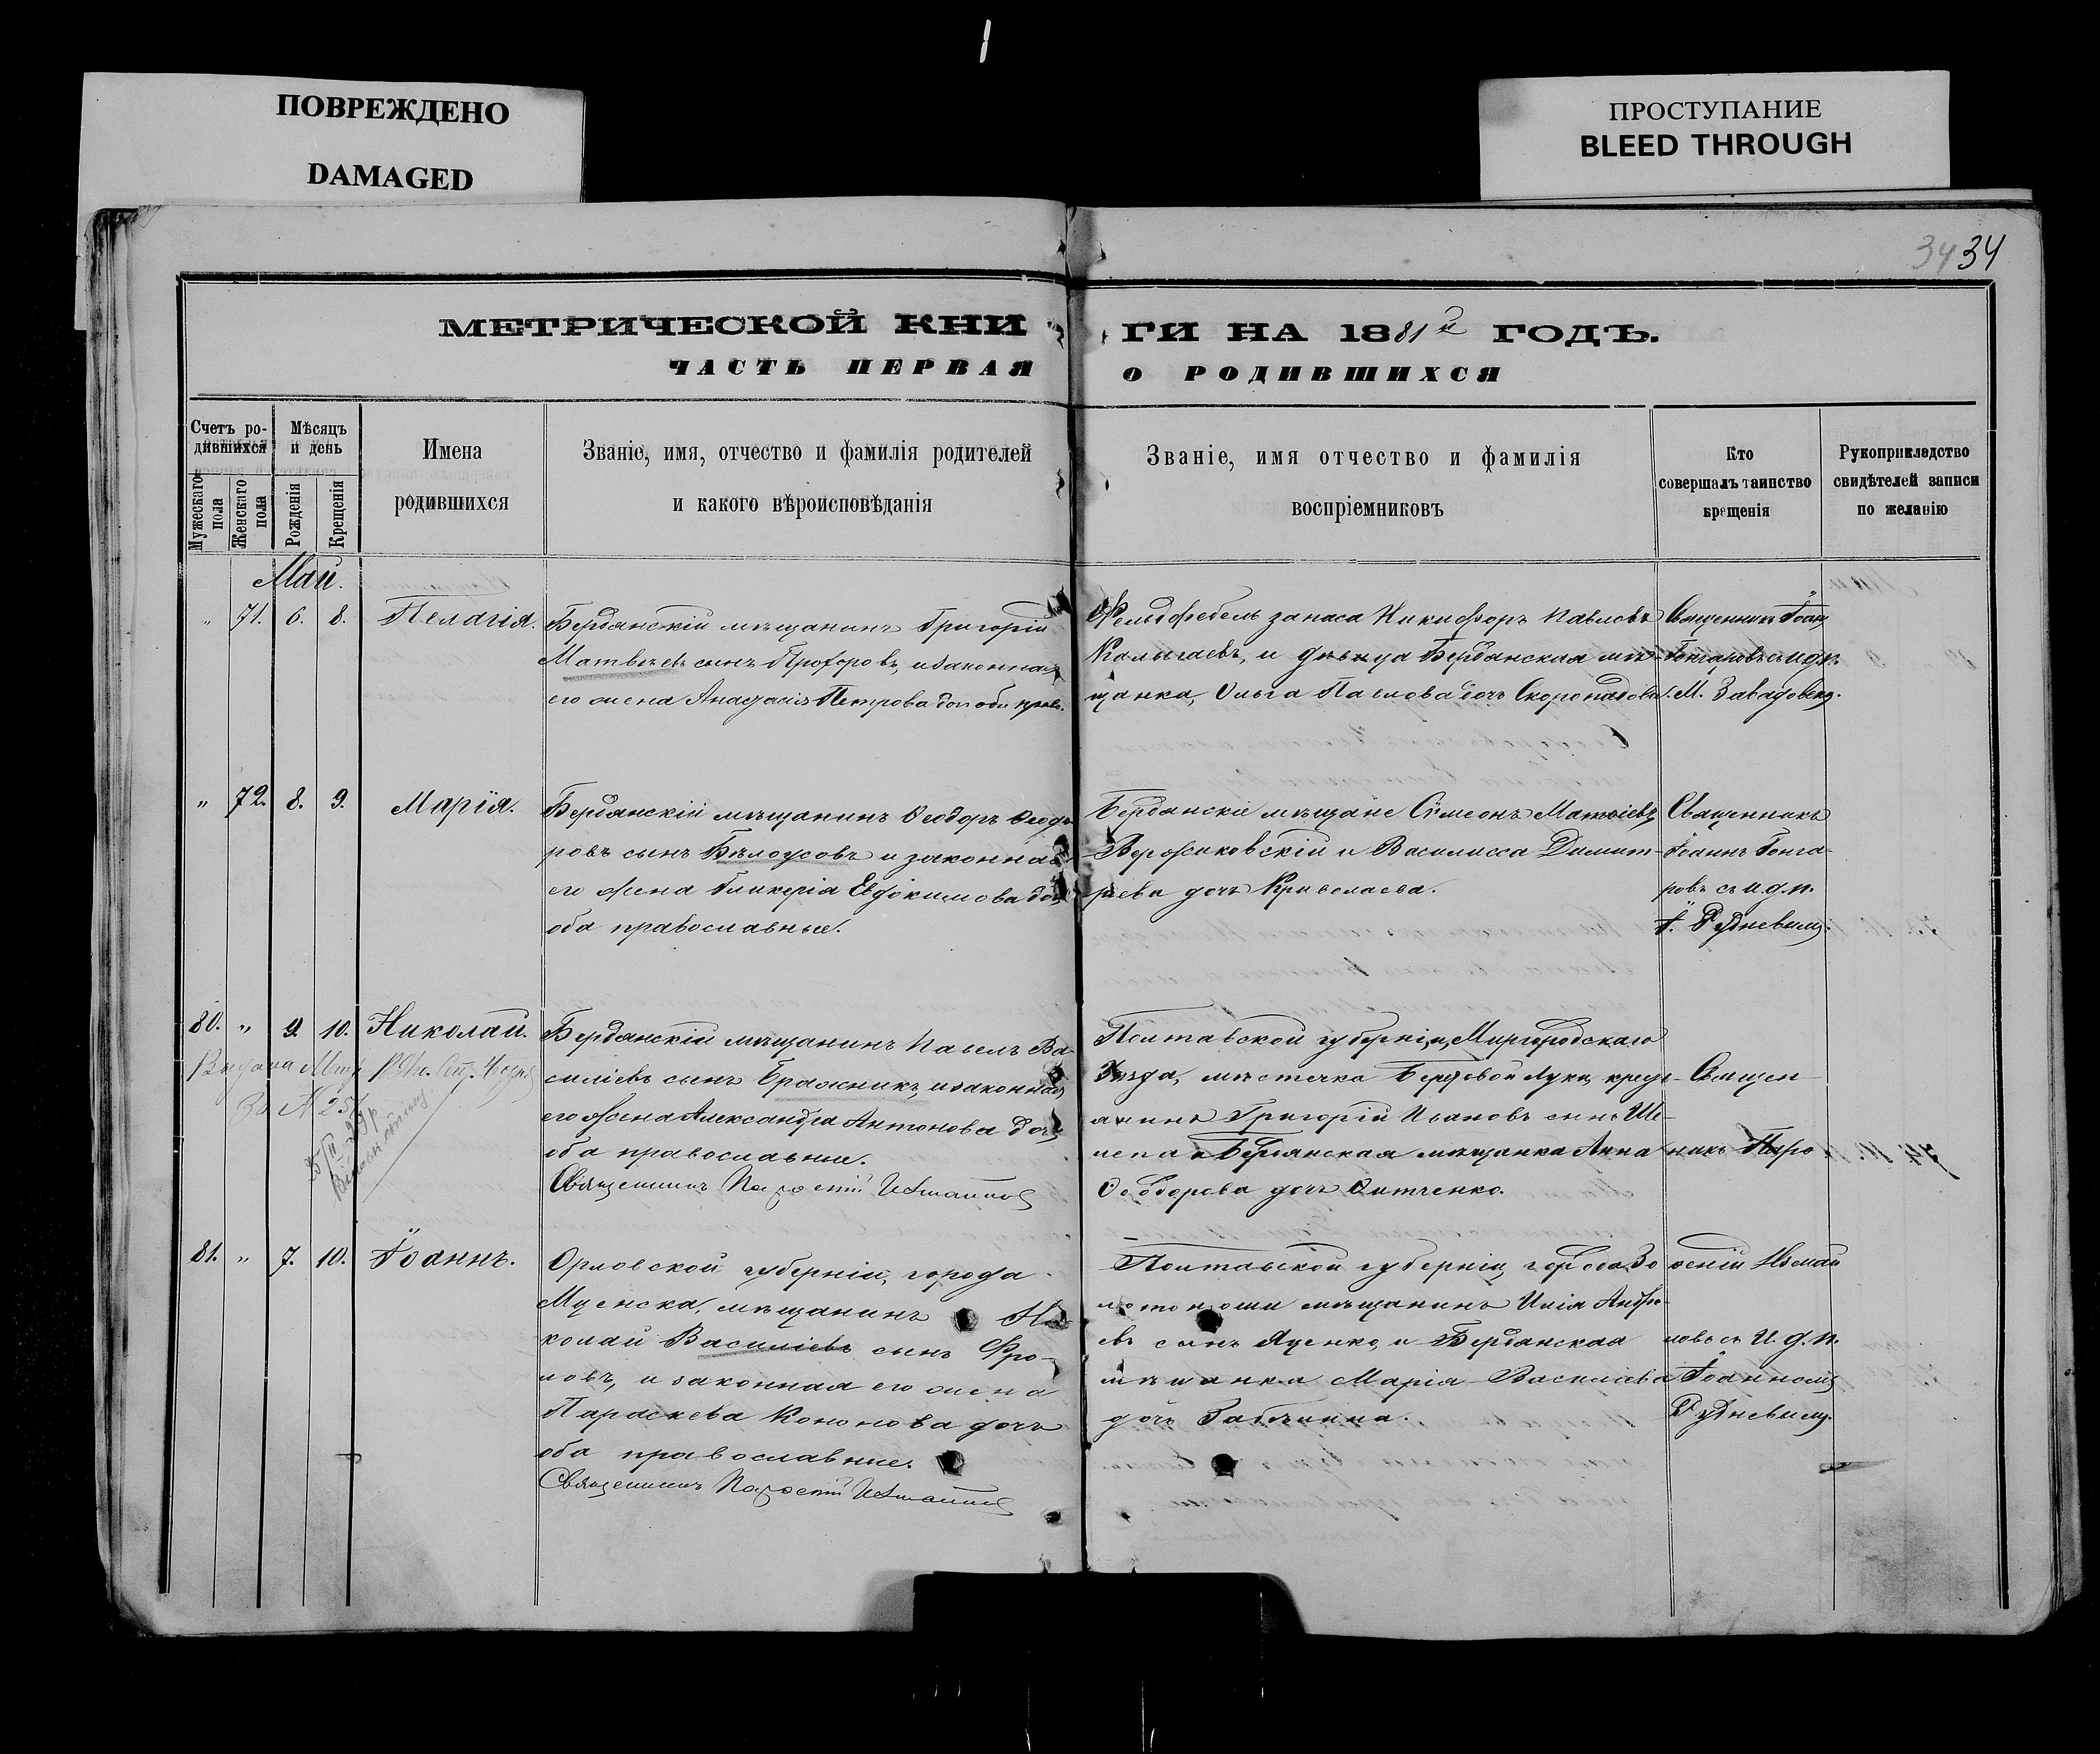 ПОВРЕЖДЕНО
DAMAGED
ПРОСТУПАНИЕ
BLEED THROUGH
34 34
МЕТРИЧЕСКОЙ КНИ
ГИ НА 1881 й ГОДЪ.
ЧАСТЬ ПЕРВАЯ
О РОДИВШИХСЯ
Счетъ ро-
дившихся
Мужескаго
пола
Женскаго
пола
Мѣсяцъ
и день
Рожденія
Крещенія
Имена
родившихся
Званіе, имя, отчество и фамилія родителей
и какого вѣроисповѣданія
Званіе, имя отчество и фамилія
воспріемниковъ
Кто
совершалъ таинство
крещенія
Рукоприкладство
свидѣтелей записи
по желанію
Май.
„ 71. 6. 8.
Пелагія.
Бердянскій мѣщанинъ Григорій
Матвѣевъ сынъ Прохоровъ, и законная
его жена Анастасія Петрова доч оба прав.
Фельдфебель запаса Никифоръ Павловъ
Калычаевъ, и дѣвица Бердянская мѣ-
щанка, Ольга Павлова дочь
Священникъ Іоан
Гонгаровъ съ и.д.п.
М.
„ 72. 8. 9.
Марія.
Бердянскій мѣщанинъ Ѳеодоръ Ѳеодо
ровъ сынъ Бѣлоусовъ и законная
его жена Гликерія Евдокимова доч
оба православные.
Бердянскіе мѣщане Сѵмеонъ
и Василисса Димит-
ріева дочь
Священникъ
Іоаннъ Гонга-
ровъ съ и.д.п.
І. Рудневымъ.
80. „ 9. 10.
Николай.
Бердянскій мѣщанинъ Павелъ Ва-
силіевъ сынъ Бражникъ, и законная
его жена Александра Антонова доч
оба православные.
Священникъ
Полтавской губерніи, Миргородскаго
Уѣзда, мѣстечка Берёзовой Луки, крест-
янинъ Григорій Ивановъ сынъ Ше-
лепа и Бердянская мѣщанка Анна
Ѳеодорова дочь
Священ
никъ
81. „ 7. 10.
Іоаннъ.
Орловской губерніи, города
Мценска, мѣщанинъ Ни
колай Василіевъ сынъ Фро-
ловъ, и законная его жена
Параскева Кононова дочь
оба православные.
Священникъ
Полтавской губерніи, города Зо
лотоноши мѣщанинъ Илія Андре-
евъ сынъ Яценко, и Бердянская
мѣщанка Марія Василіева
дочь
новъ съ И.д.п.
Іоанномъ
Рудневымъ.